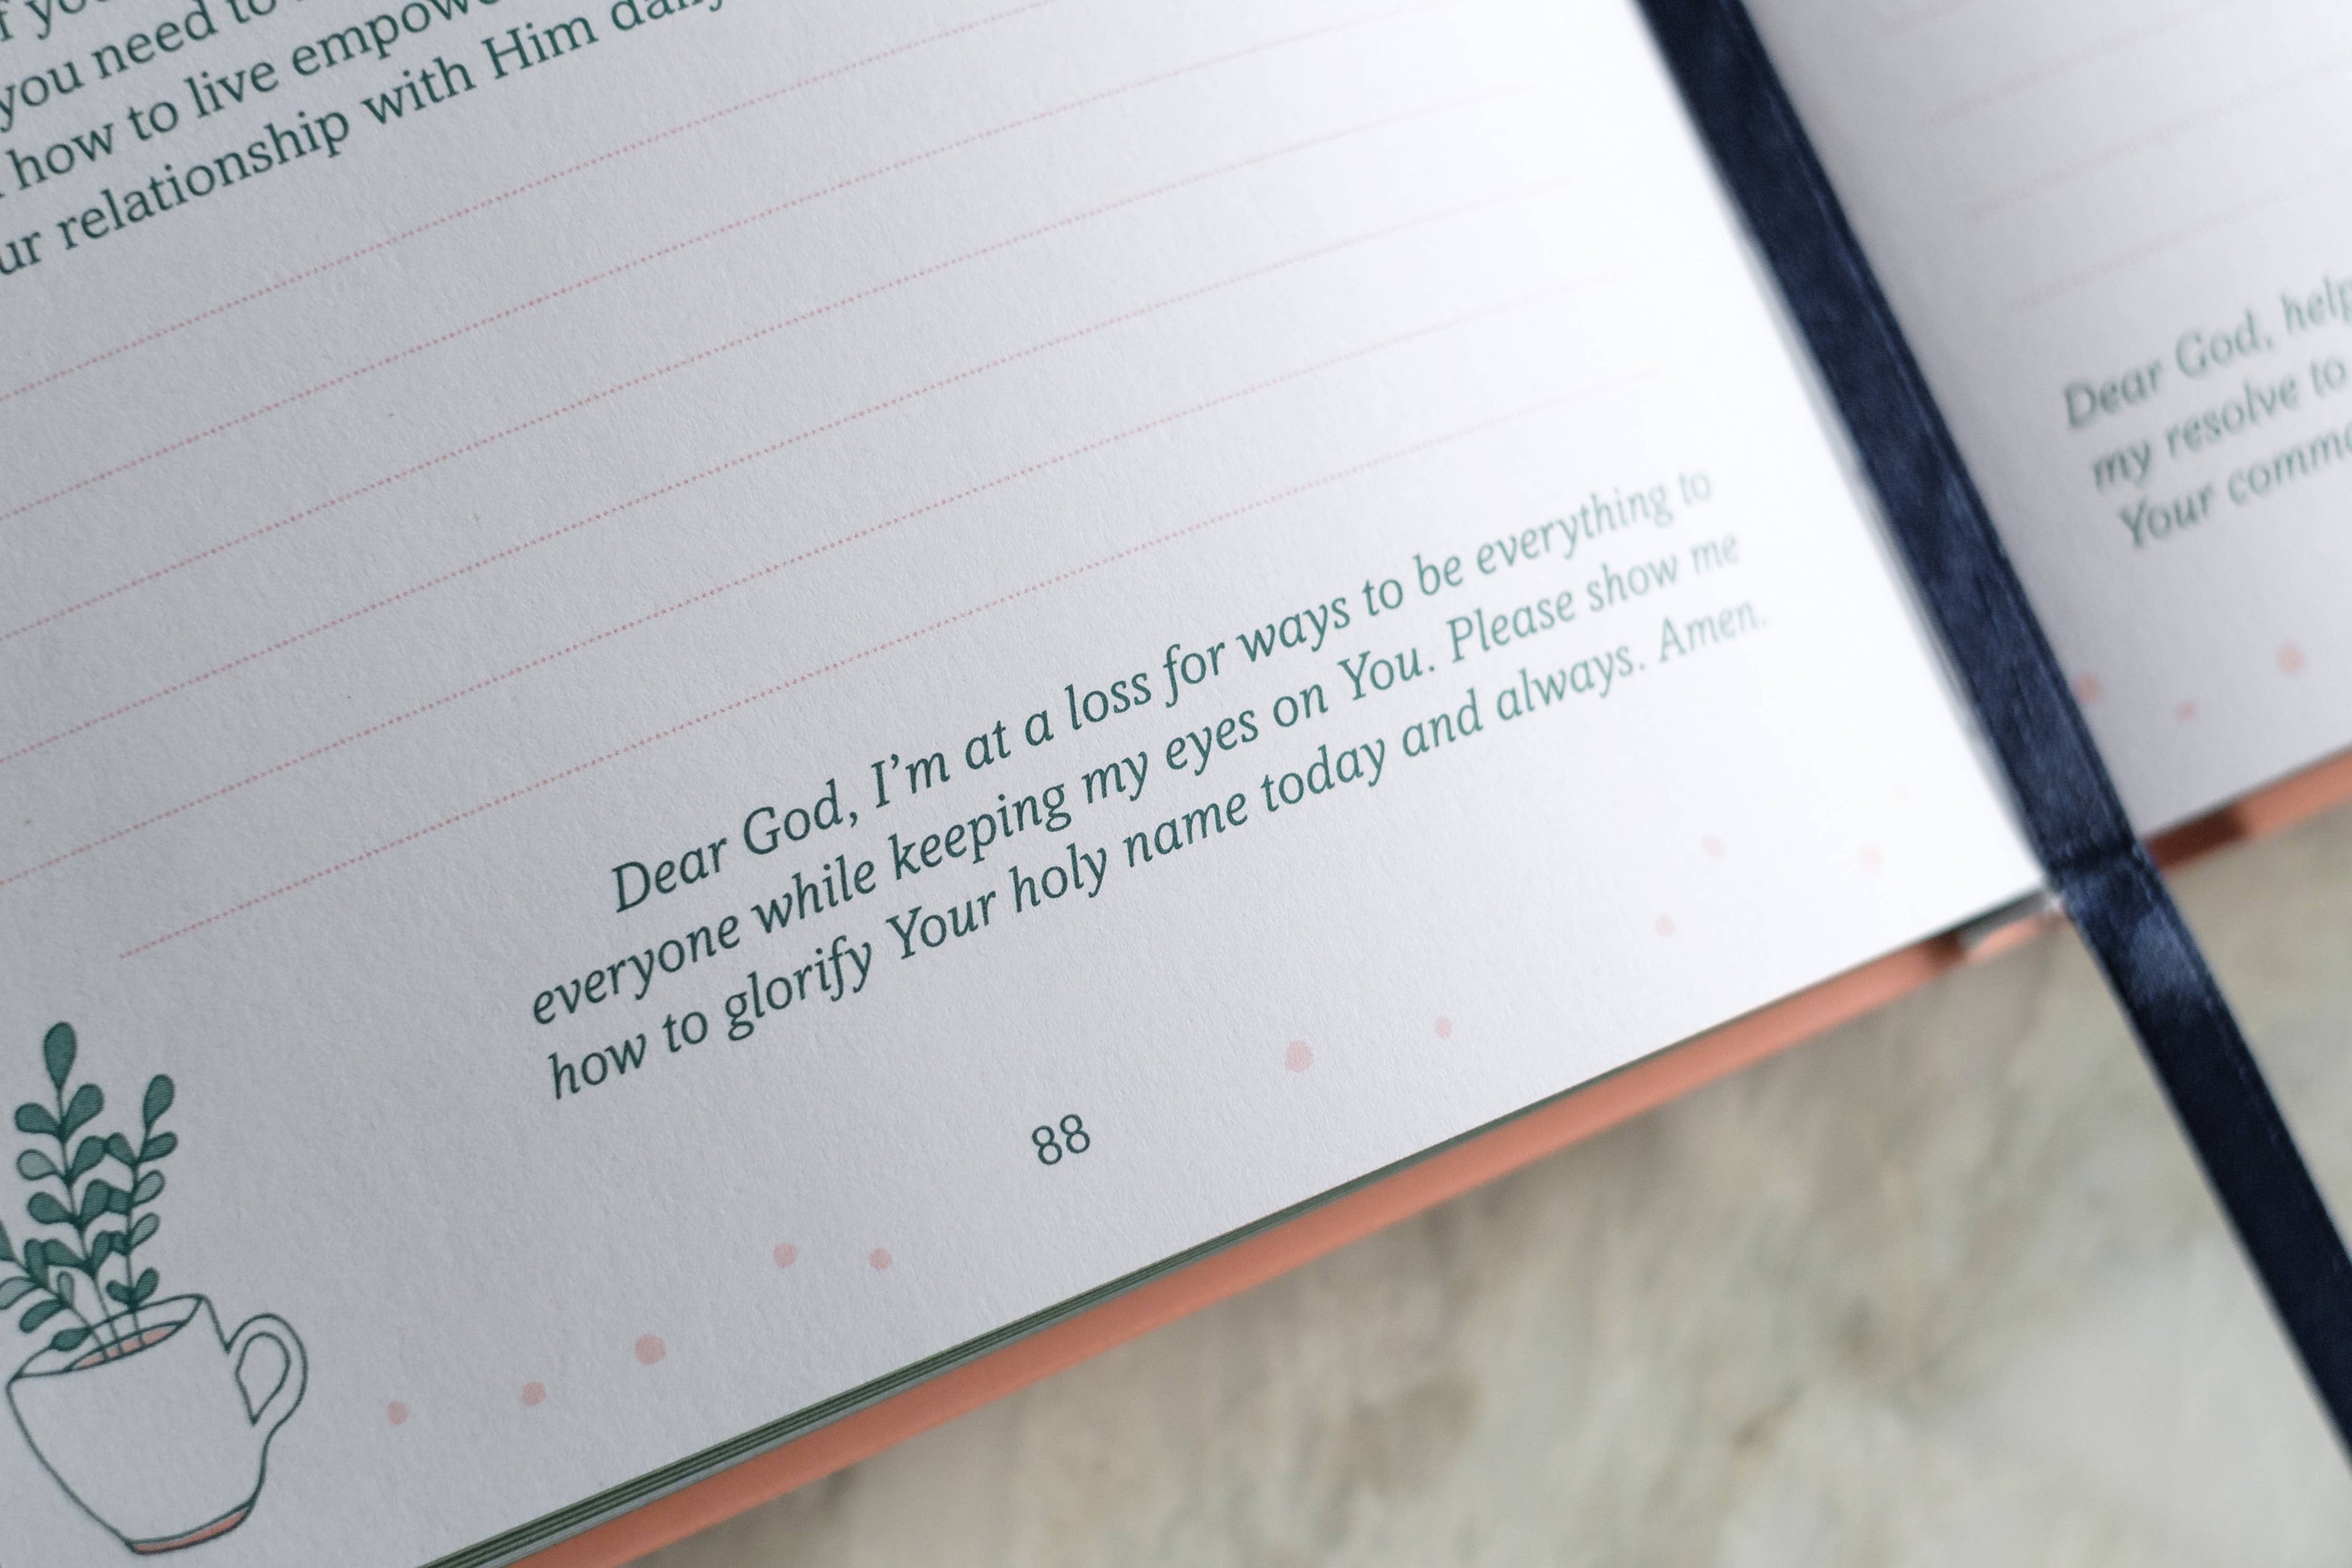 you need to
how to live
relationship with Him
Dear God, I’m at a loss for ways to be everything to
everyone while keeping my eyes on You. Please show me
how to glorify Your holy name today and always. Amen.
88
Dear God, help
my resolve to
Your